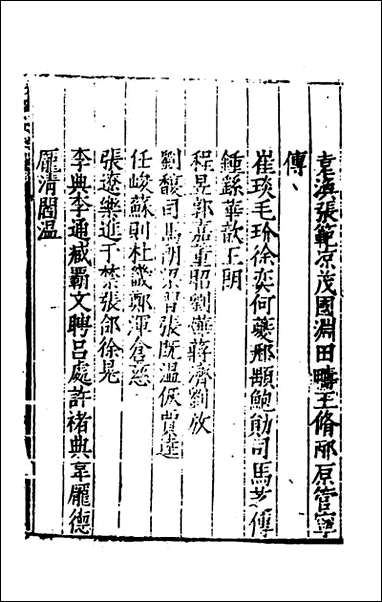 袁渙張範凉茂國淵田疇王脩邴原管寧
傳
崔琰毛玠徐奕何夔邢顒鮑勛司馬芝傳
鍾繇華歆王朗
程昱郭嘉董昭劉曄蔣濟劉放
劉馥司馬朗梁習張既温恢賈逵
任峻蘇則杜畿鄭渾倉慈
張遼樂進于禁張郃徐晃
李典李通臧霸文聘吕虔許褚典韋龐德
龐清閻温